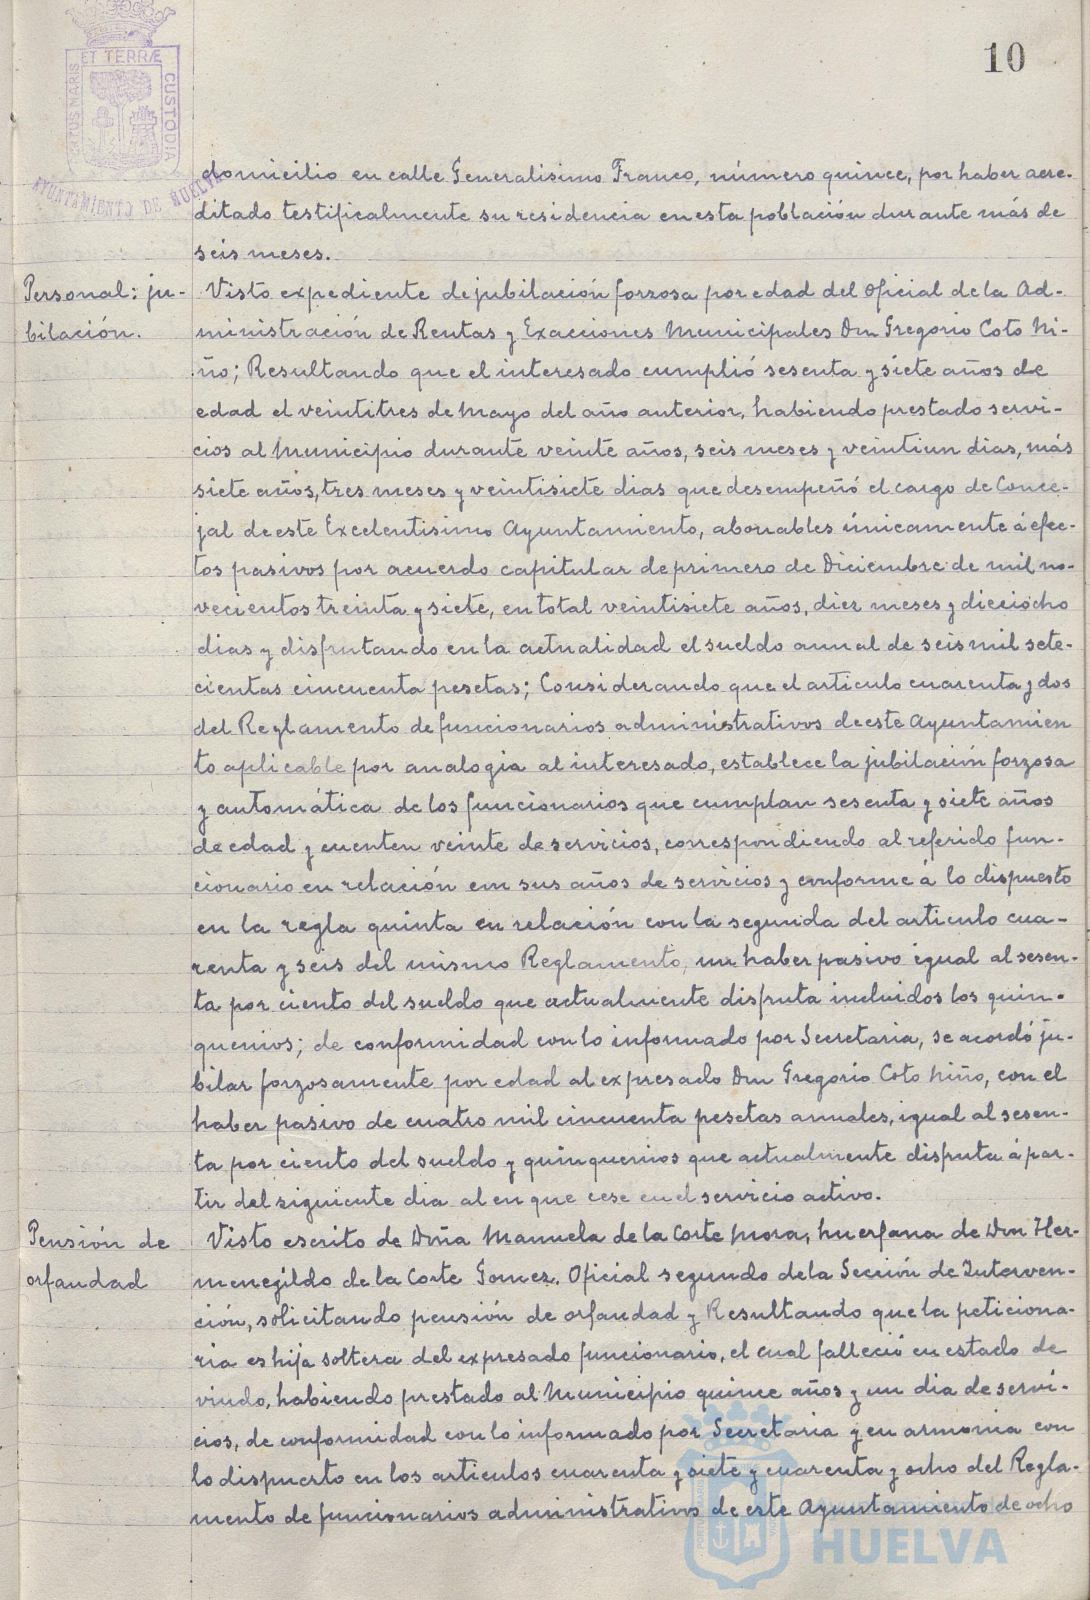 10
ET TERRÆ
CUSTODIA
AYUNTAMIENTO DE HUELVA
domicilio en calle Generalisimo Franco, número quince, por haber acre-
ditado testificalmente su residencia en esta población durante más de
seis meses.
Personal: ju-
bilación.
Visto expediente de jubilación forzosa por edad del Oficial de la Ad-
ministración de Rentas y Exacciones Municipales Don Gregorio Coto Ni-
ño; Resultando que el interesado cumplió sesenta y siete años de
edad el veintitres de Mayo del año anterior, habiendo prestado servi-
cios al Municipio durante veinte años, seis meses y veintiun dias, más
siete años, tres meses y veintisiete dias que desempeñó el cargo de Conce-
jal de este Excelentisimo Ayuntamiento, abonables únicamente á efec-
tos pasivos por acuerdo capitular de primero de Diciembre de mil no-
vecientos treinta y siete, en total veintisiete años, diez meses y dieciocho
dias y disfrutando en la actualidad el sueldo anual de seis mil sete-
cientas cincuenta pesetas; Considerando que el articulo cuarenta y dos
del Reglamento de funcionarios administrativos de este Ayuntamien
to aplicable por analogia al interesado, establece la jubilación forzosa
y automática de los funcionarios que cumplan sesenta y siete años
de edad y cuenten veinte de servicios, correspondiendo al referido fun-
cionario en relación con sus años de servicios y conforme á lo dispuesto
en la regla quinta en relación con la segunda del articulo cua-
renta y seis del mismo Reglamento, un haber pasivo igual al sesen-
ta por ciento del sueldo que actualmente disfruta incluidos los quin-
quenios; de conformidad con lo informado por Secretaria, se acordó ju-
bilar forzosamente por edad al expresado Don Gregorio Coto Niño, con el
haber pasivo de cuatro mil cincuenta pesetas anuales, igual al sesen-
ta por ciento del sueldo y quinquenios que actualmente disfruta á par-
tir del siguiente dia al en que cese en el servicio activo.
Pensión de
orfandad
Visto escrito de Doña Manuela de la Corte Mora, huerfana de Don Her-
menegildo de la Corte Gomez, Oficial segundo de la Sección de Interven-
ción, solicitando pensión de orfandad y Resultando que la peticiona-
ria es hija soltera del expresado funcionario, el cual falleció en estado de
viudo, habiendo prestado al Municipio quince años y un dia de servi-
cios, de conformidad con lo informado por Secretaria y en armonia con
lo dispuesto en los articulos cuarenta y siete y cuarenta y ocho del Regla-
mento de funcionarios administrativos de este Ayuntamiento de ocho
HUELVA